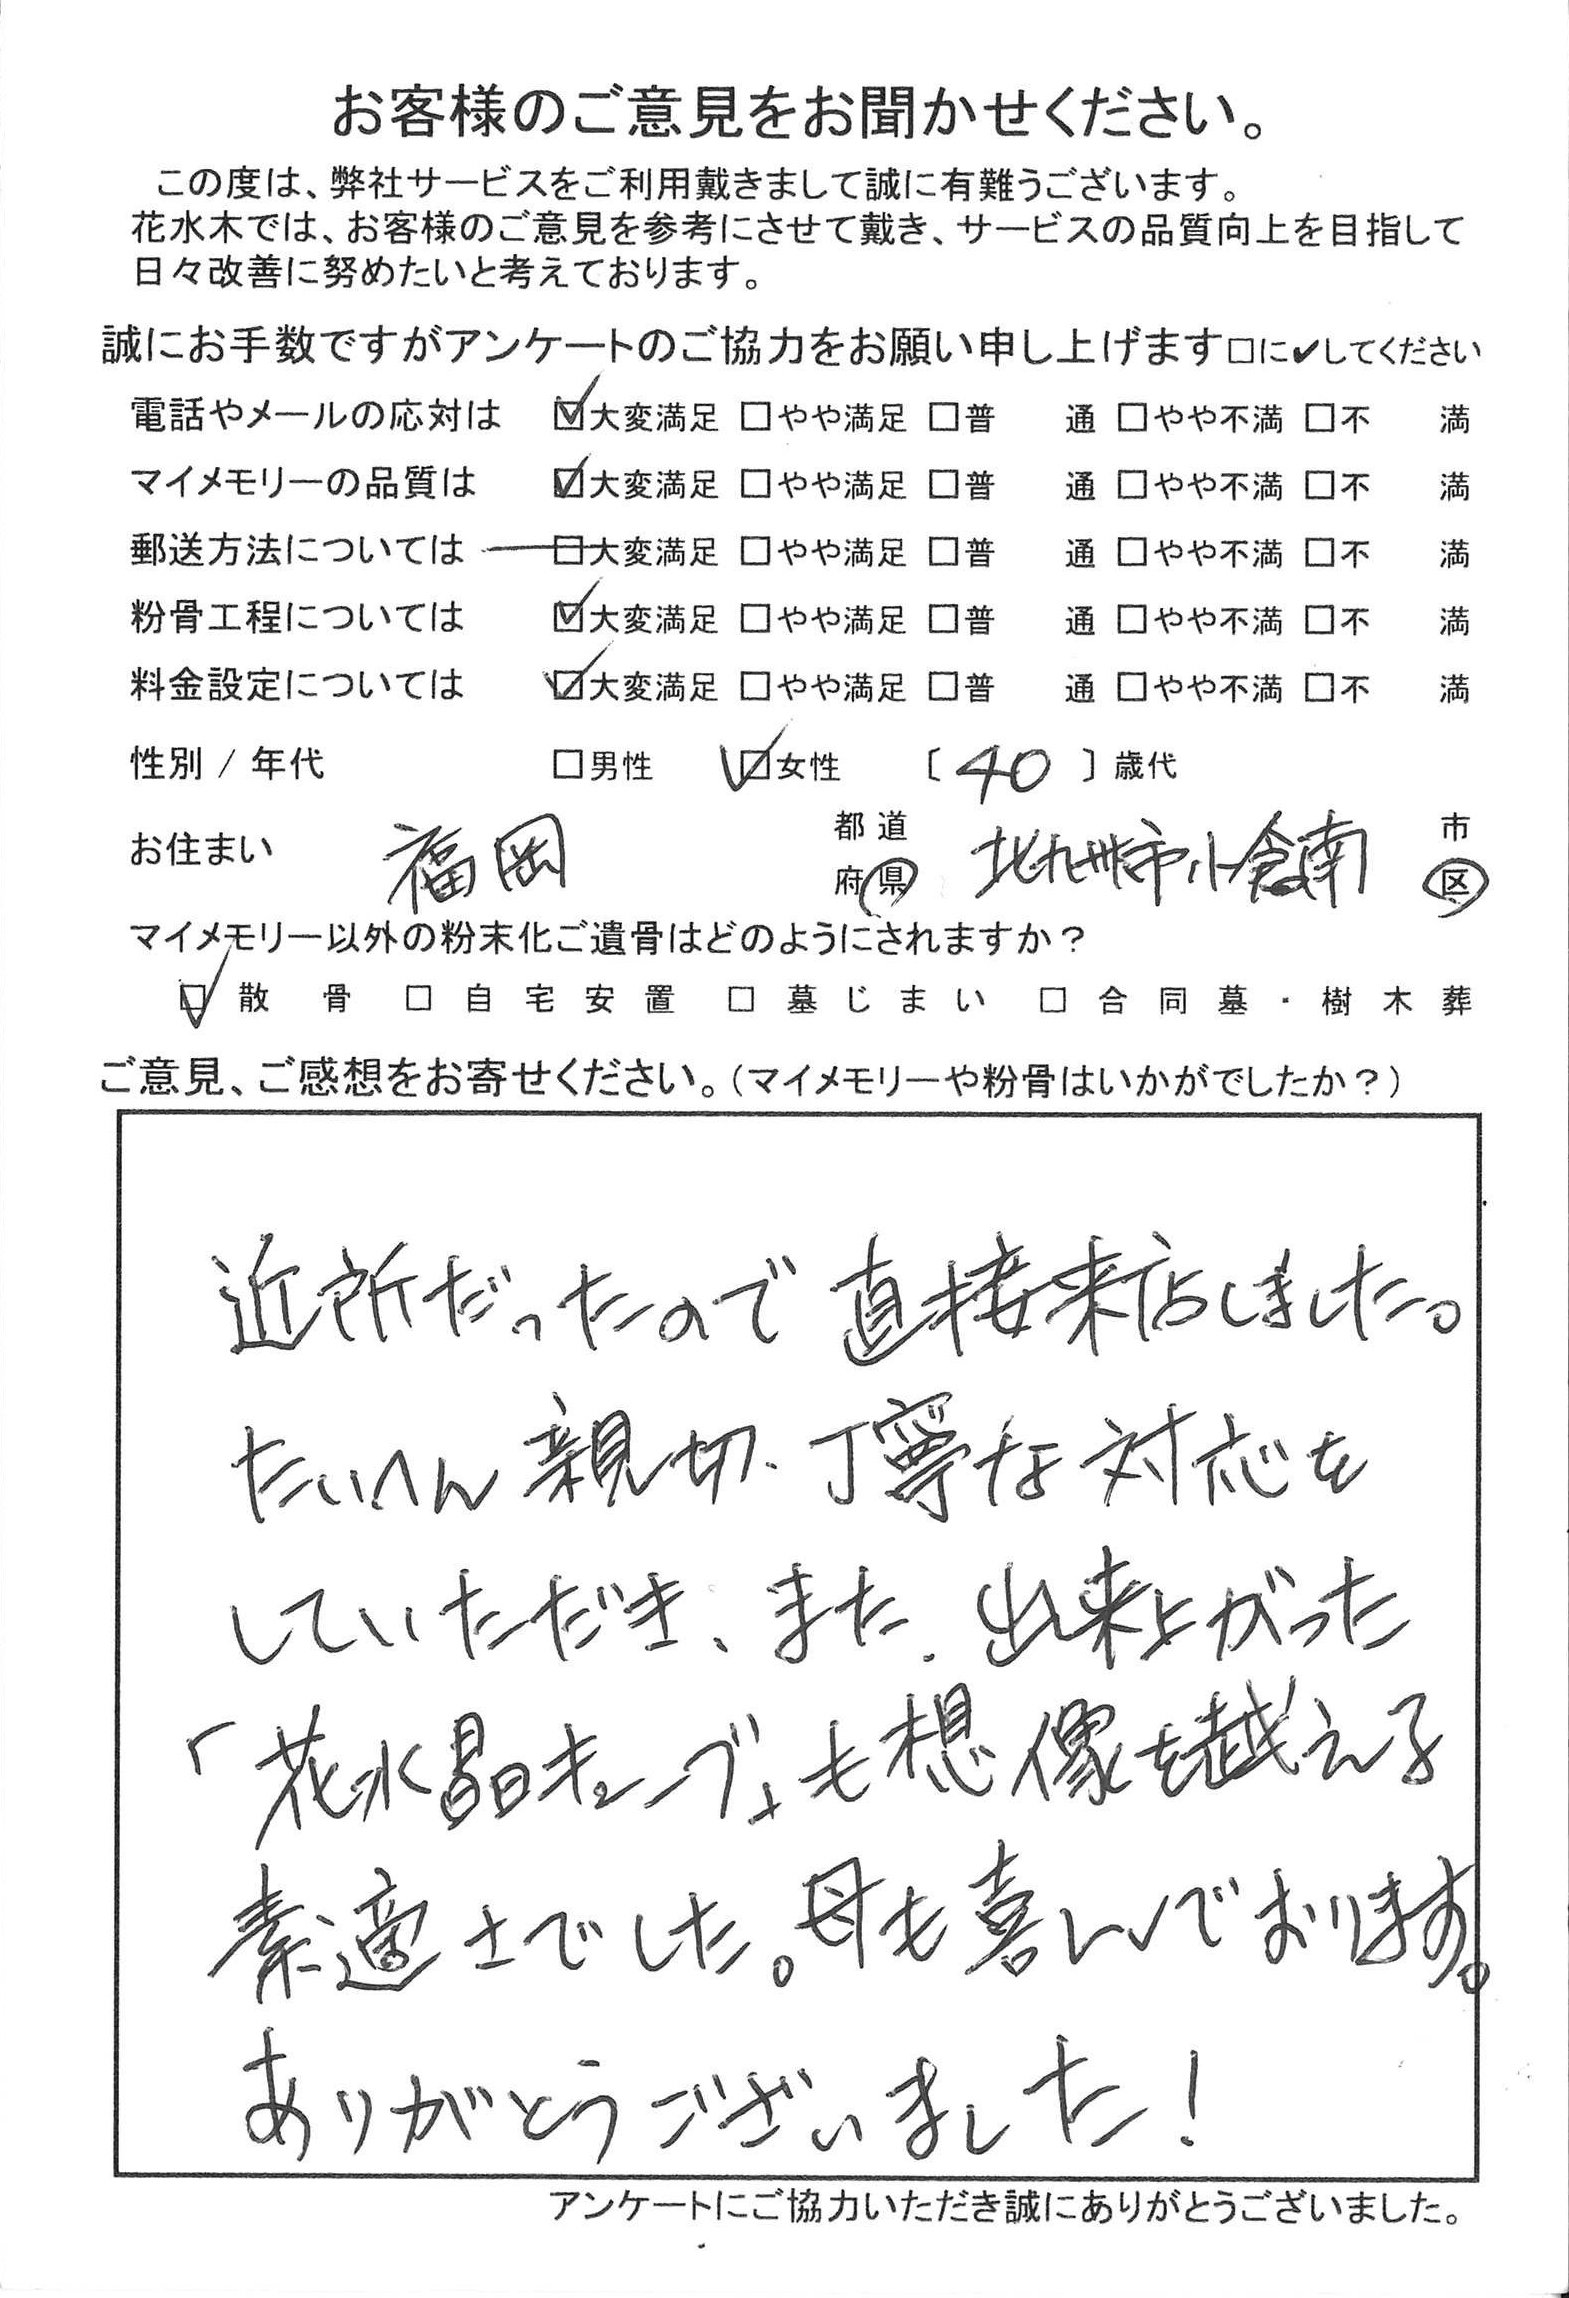 お客様のご意見をお聞かせください。
この度は、弊社サービスをご利用戴きまして誠に有難うございます。
花水木では、お客様のご意見を参考にさせて戴き、サービスの品質向上を目指して
日々改善に努めたいと考えております。
誠にお手数ですがアンケートのご協力をお願い申し上げます□に✔してください
電話やメールの応対は ☑大変満足 □やや満足 □普 通 □やや不満 □不 満
マイメモリーの品質は ☑大変満足 □やや満足 □普 通 □やや不満 □不 満
郵送方法については □大変満足 □やや満足 □普 通 □やや不満 □不 満
粉骨工程については ☑大変満足 □やや満足 □普 通 □やや不満 □不 満
料金設定については ☑大変満足 □やや満足 □普 通 □やや不満 □不 満
性別 / 年代 □男性 ☑女性 〔 40 〕歳代
お住まい 福岡 都道府県 北九州市小倉南 市区
マイメモリー以外の粉末化ご遺骨はどのようにされますか？
☑ 散骨 □ 自宅安置 □ 墓じまい □ 合同墓・樹木葬
ご意見、ご感想をお寄せください。（マイメモリーや粉骨はいかがでしたか？）
近所だったので直接来店しました。
たいへん親切、丁寧な対応を
していただき、また、出来上がった
「花水晶キューブ」も想像を越える
素適さでした。母も喜んでおります。
ありがとうございました！
アンケートにご協力いただき誠にありがとうございました。